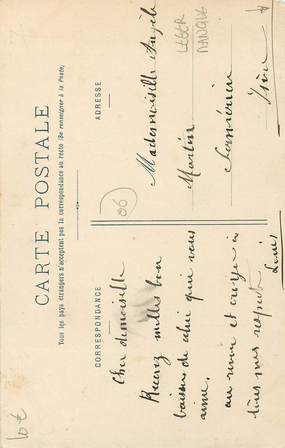 CARTE POSTALE
Tous les pays étrangers n'acceptent pas la correspondance au recto (Se renseigner à la Poste)
CORRESPONDANCE
ADRESSE
Cher demoiselle
Recevez milles bon
baisers de celui qui vous
aime.
au revoir et croyez à
tous mes respects
Louis
Mademoiselle Angèle
Martin
Isère
LEGER
MANQUE
(06)
10€